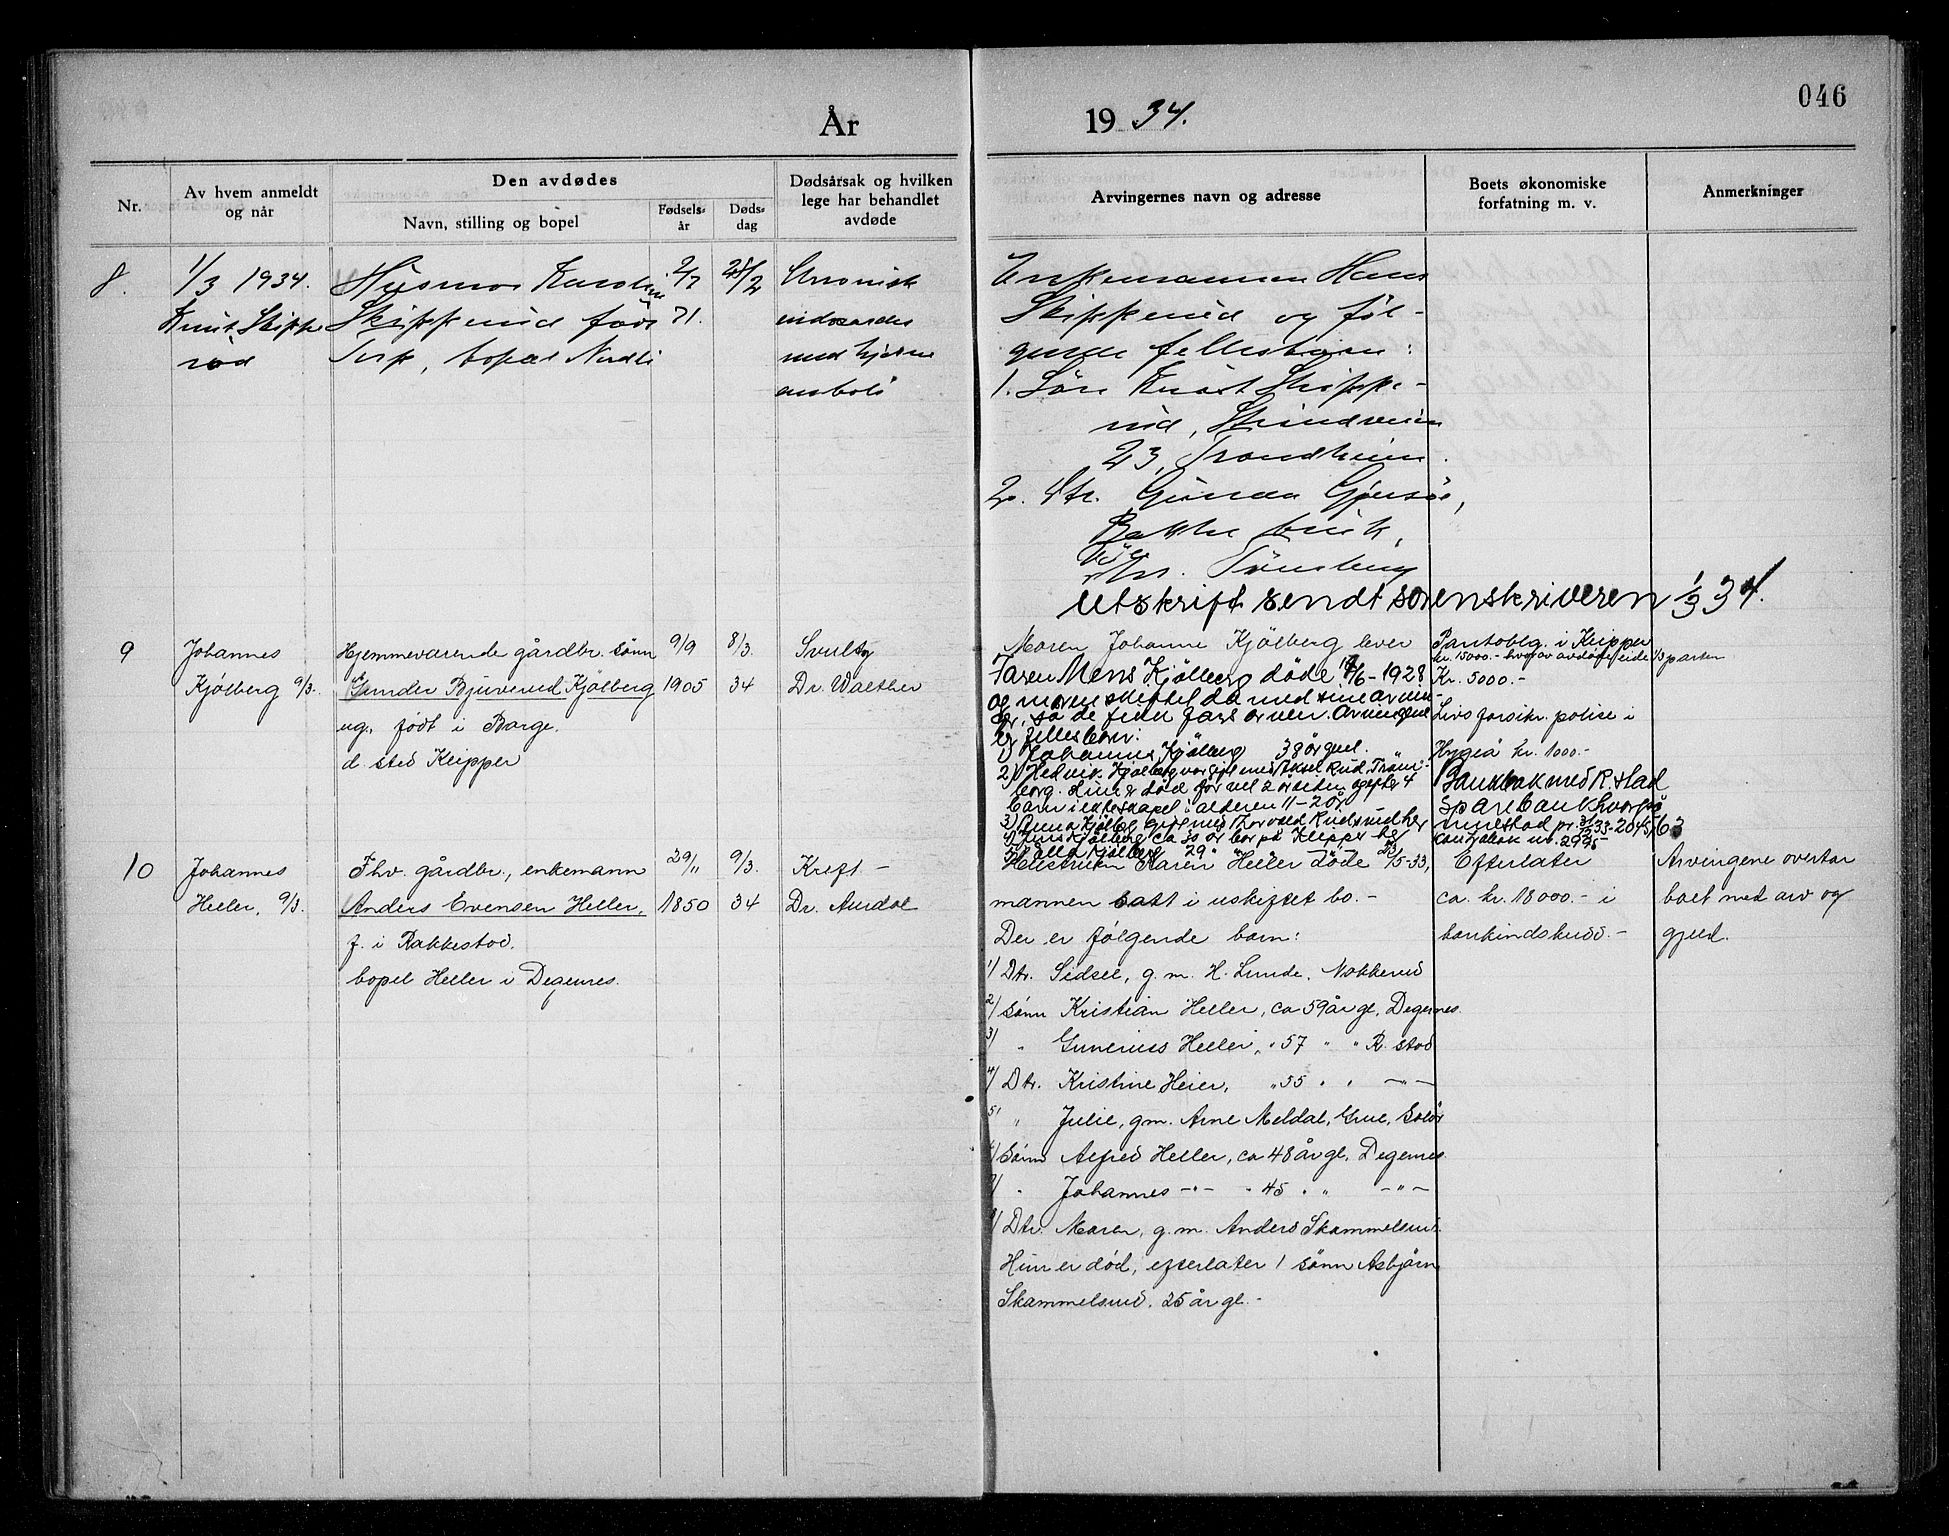 046
År 1934.
Nr.
Av hvem anmeldt og når
Den avdødes
Navn, stilling og bopel
Fødselsår
Dødsdag
Dødsårsak og hvilken lege har behandlet avdøde
Arvingernes navn og adresse
Boets økonomiske forfatning m. v.
Anmerkninger
8.
1/3 1934.
Knut Skippe
rød
Husmor Karoline
Skipperud født
Torp, bopæl
2/7
71.
25/2
Chronisk
endocardit
med hjerne
emboli
Enkemannen Hans
Skipperud og føl-
gende fellesbarn:
1. Søn Knut Skippe-
rud, Strindveien
23, Trondheim.
2. Dtr. Gunda
Bakke bruk,
pr. Tønsberg
Utskrift sendt sorenskriveren 1/3 34.
9
Johannes
Kjølberg 9/3.
Hjemmeværende gårdbr. sønn
Gunder Bjuverud Kjølberg
ug., født i Borge.
d. sted Kripper
9/9
1905
8/3.
34
Svulst
Dr. Walther
Maren Johanne Kjølberg lever
Faren Mens Kjølberg døde 17/6-1928
og moren skiftet da med sine arvin-
ger, så de fikk fars arven. Arvingene
er fellesbarn:
1) Johannes Kjølberg 38 år gml.
2) Hedvik Kjølberg var gift med Aksel Rud, Trøm-
borg. Hun er død for vel 2 år siden og efter 4
barn i ekteskapet i alderen 11-20 år
3) Anna Kjølberg gift med Thorvald Rudsrud her
4) Jens Kjølberg ca 35 år bor på Klipper her
5) Olla Kjølberg 29
Pantoblg. i Kripper
kr. 15000.- hvorav avdøde eide 1/3 parten
Kr. 5000.-
Livsforsikr. polise i
Hygea kr. 1000.-
Bankbok med R.stad
Sparebank hvorpå
innestod pr. 31/12 33 2045,63
Kontrabok nr. 2995
10
Johannes
Heller, 9/3.
Fhv. gårdbr., enkemann
Anders Evensen Heller,
f. i Rakkestad.
bopel Heller i Degernes.
29/11
1850
9/3.
34
Kreft -
Dr. Aurdal
Hustruen Maren Heller døde 23/5-33,
mannen satt i uskiftet bo. -
Der er følgende barn:
1/ Dtr. Sidsel, g. m. H. Lunde, Nakkerud
2/ Sønn Kristian Heller, ca 59 år gl, Degernes.
3/ " Gunerius Heller, " 57 " " R. stad
4/ Dtr. Kristine Heier, " 55 " " -"-
5/ " Julie, g.m. Arne Meldal, Grue, Solør
6/ Sønn Alfred Heller, ca 48 år gl, Degernes
7/ " Johannes -"- " 45 " " -"-
8/ Dtr. Maren, g. m. Anders Skammelsrud.
Hun er død, efterlater 1 sønn Asbjørn
Skammelsrud, 25 år gl. -
Efterlater
ca. kr. 18000.- i
bankindskudd. -
Arvingene overtar
boet med arv og
gjeld.